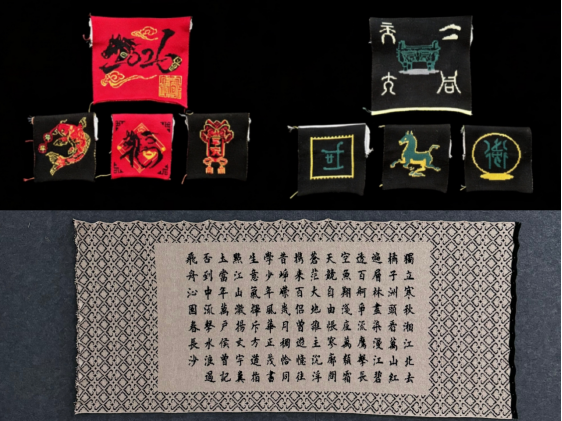 2026
獨立寒秋湘江北去
橘子洲頭看萬山紅
遍層林盡染漫江碧
透百舸爭流鷹擊長
空魚翔淺底萬類霜
天競自由悵寥廓問
蒼茫大地誰主沉浮
攜來百侶曾遊憶往
昔崢嶸歲月稠恰同
學少年風華正茂書
生意氣揮斥方遒指
點江山激揚文字糞
土當年萬戶侯曾記
否到中流擊水浪遏
飛舟沁園春長沙